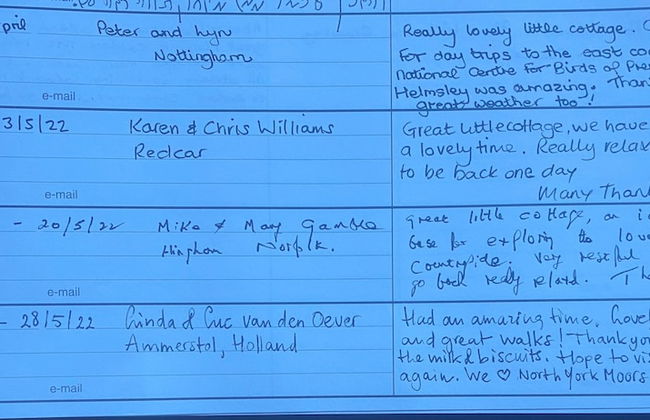 pril Peter and Lyn Really lovely little cottage.
Nottingham For day trips to the east co
national Centre for Birds of Pre
e-mail Helmsley was amazing. Than
great weather too!
3/5/22 Karen & Chris Williams Great little cottage, we have
Redcar a lovely time. Really relax
to be back one day
e-mail Many Than
- 20/5/22 Mike & Mary Gamble Great little cottage, an i
Hingham Norfolk. base for exploring the lov
Countryside. Very restful
e-mail go back really relaxed. Th
- 28/5/22 Linda & Luc van den Oever Had an amazing time. Lovel
Ammerstol, Holland and great walks! Thank you
the milk & biscuits. Hope to vis
e-mail again. We ♡ North York Moors